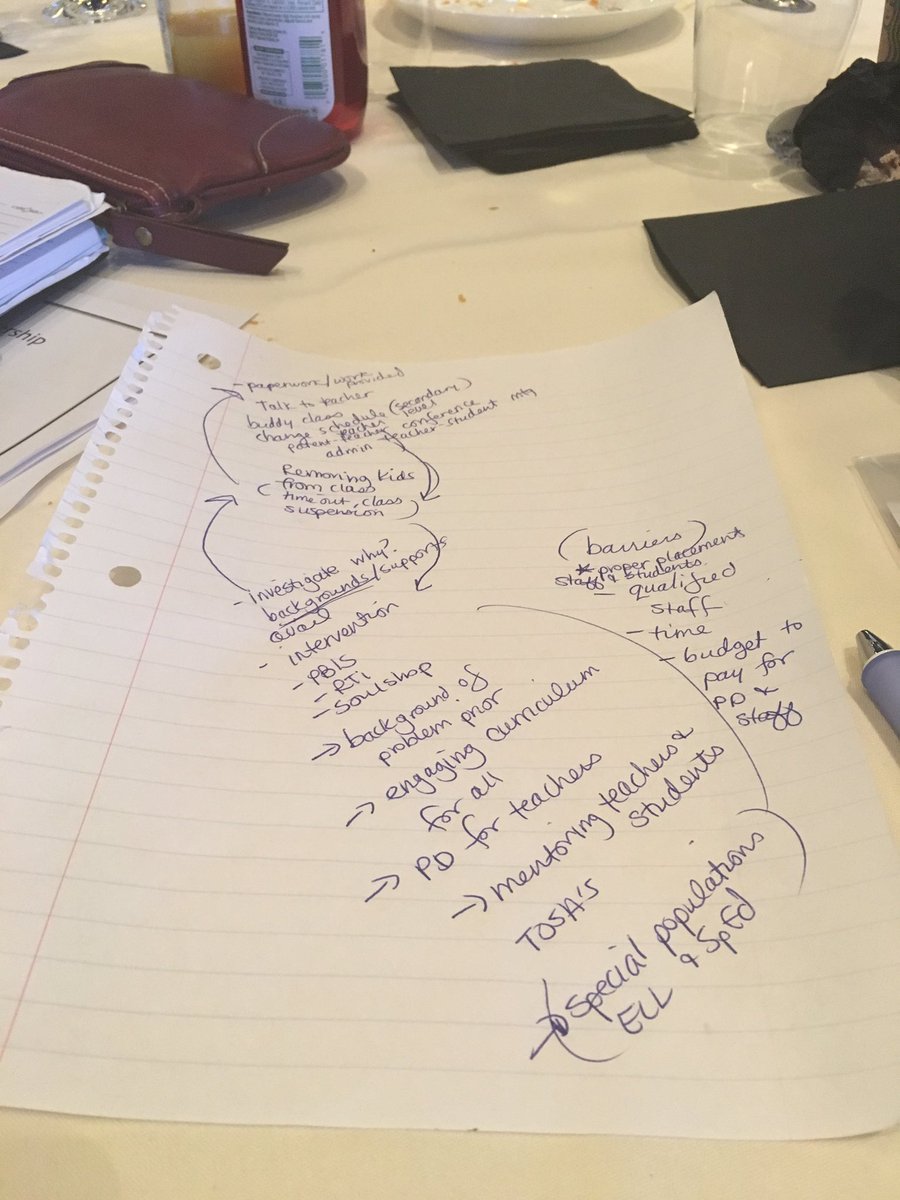 - paperwork/work provided
Talk to teacher
buddy class
change schedule (secondary level)
parent-teacher conference
admin teacher-student mtg
Removing kids
from class
time out, class
suspension
- investigate why?
backgrounds/supports
avail
- intervention
- PBIS
- RTi
- Soulshop
→ background of
problem prior
→ engaging curriculum
for all
→ PD for teachers
→ mentoring teachers &
students
TOSA's
→ special populations
ELL & SpEd
(barriers)
* proper placement
staff & students
- qualified
staff
- time
- budget to
pay for
PD &
staff